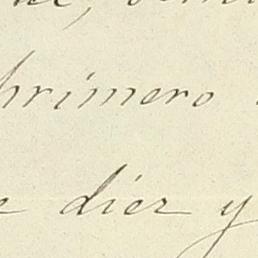 primero
diez y